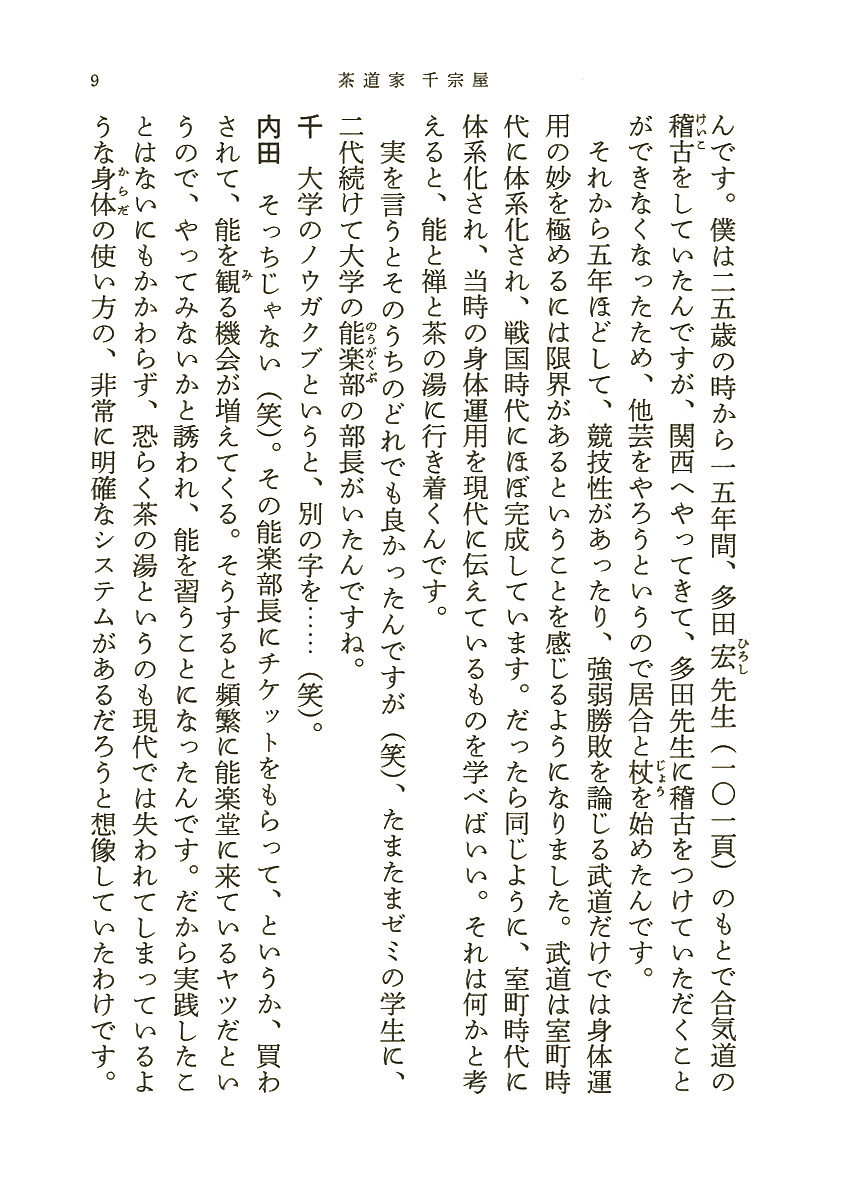 9
茶道家 千宗屋
んです。僕は二五歳の時から一五年間、多田宏先生（一〇二頁）のもとで合気道の
稽古をしていたんですが、関西へやってきて、多田先生に稽古をつけていただくこと
ができなくなったため、他芸をやろうというので居合と杖を始めたんです。
　それから五年ほどして、競技性があったり、強弱勝敗を論じる武道だけでは身体運
用の妙を極めるには限界があるということを感じるようになりました。武道は室町時
代に体系化され、戦国時代にほぼ完成しています。だったら同じように、室町時代に
体系化され、当時の身体運用を現代に伝えているものを学べばいい。それは何かと考
えると、能と禅と茶の湯に行き着くんです。
　実を言うとそのうちのどれでも良かったんですが（笑）、たまたまゼミの学生に、
二代続けて大学の能楽部の部長がいたんですね。
千　大学のノウガクブというと、別の字を……（笑）。
内田　そっちじゃない（笑）。その能楽部長にチケットをもらって、というか、買わ
されて、能を観る機会が増えてくる。そうすると頻繁に能楽堂に来ているヤツだとい
うので、やってみないかと誘われ、能を習うことになったんです。だから実践したこ
とはないにもかかわらず、恐らく茶の湯というのも現代では失われてしまっているよ
うな身体の使い方の、非常に明確なシステムがあるだろうと想像していたわけです。
ひろし
けいこ
じょう
のうがくぶ
み
からだ